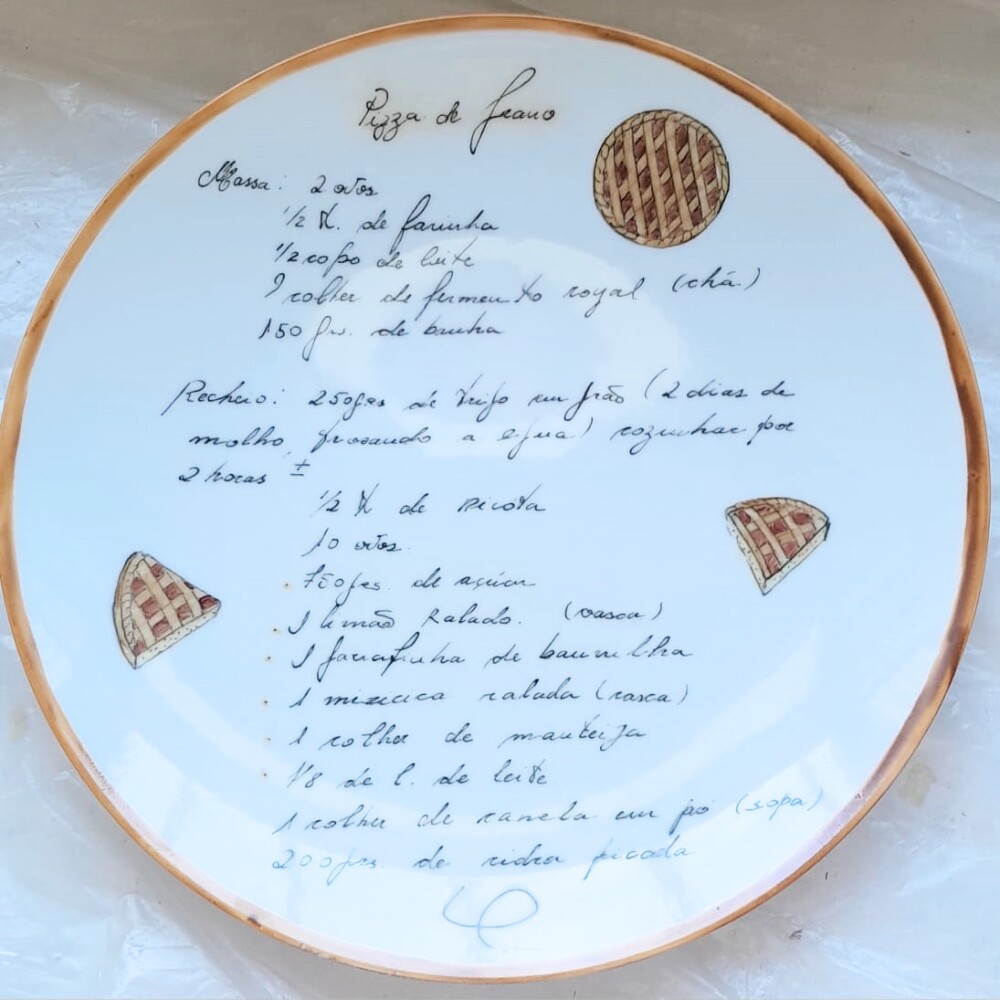 Pizza de grano
Massa: 2 ovos
1/2 K. de farinha
1/2 copo de leite
1 colher de fermento royal (chá)
150 grs. de banha
Recheio: 250grs de trigo em grão (2 dias de
molho, trocando a água) cozinhar por
2 horas ±
1/2 K de ricota
10 ovos.
750grs. de açúcar
1 limão ralado. (casca)
1 garrafinha de baunilha
1 mixirica ralada (casca)
1 colher de manteiga
1/8 de l. de leite
1 colher de canela em pó (sopa)
200grs. de cidra picada